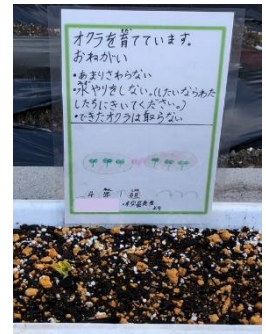 オクラを育てています。
おねがい
・あまりさわらない
・水やりをしない。(したいならわた
したちにきいてください。)
・できたオクラは取らない